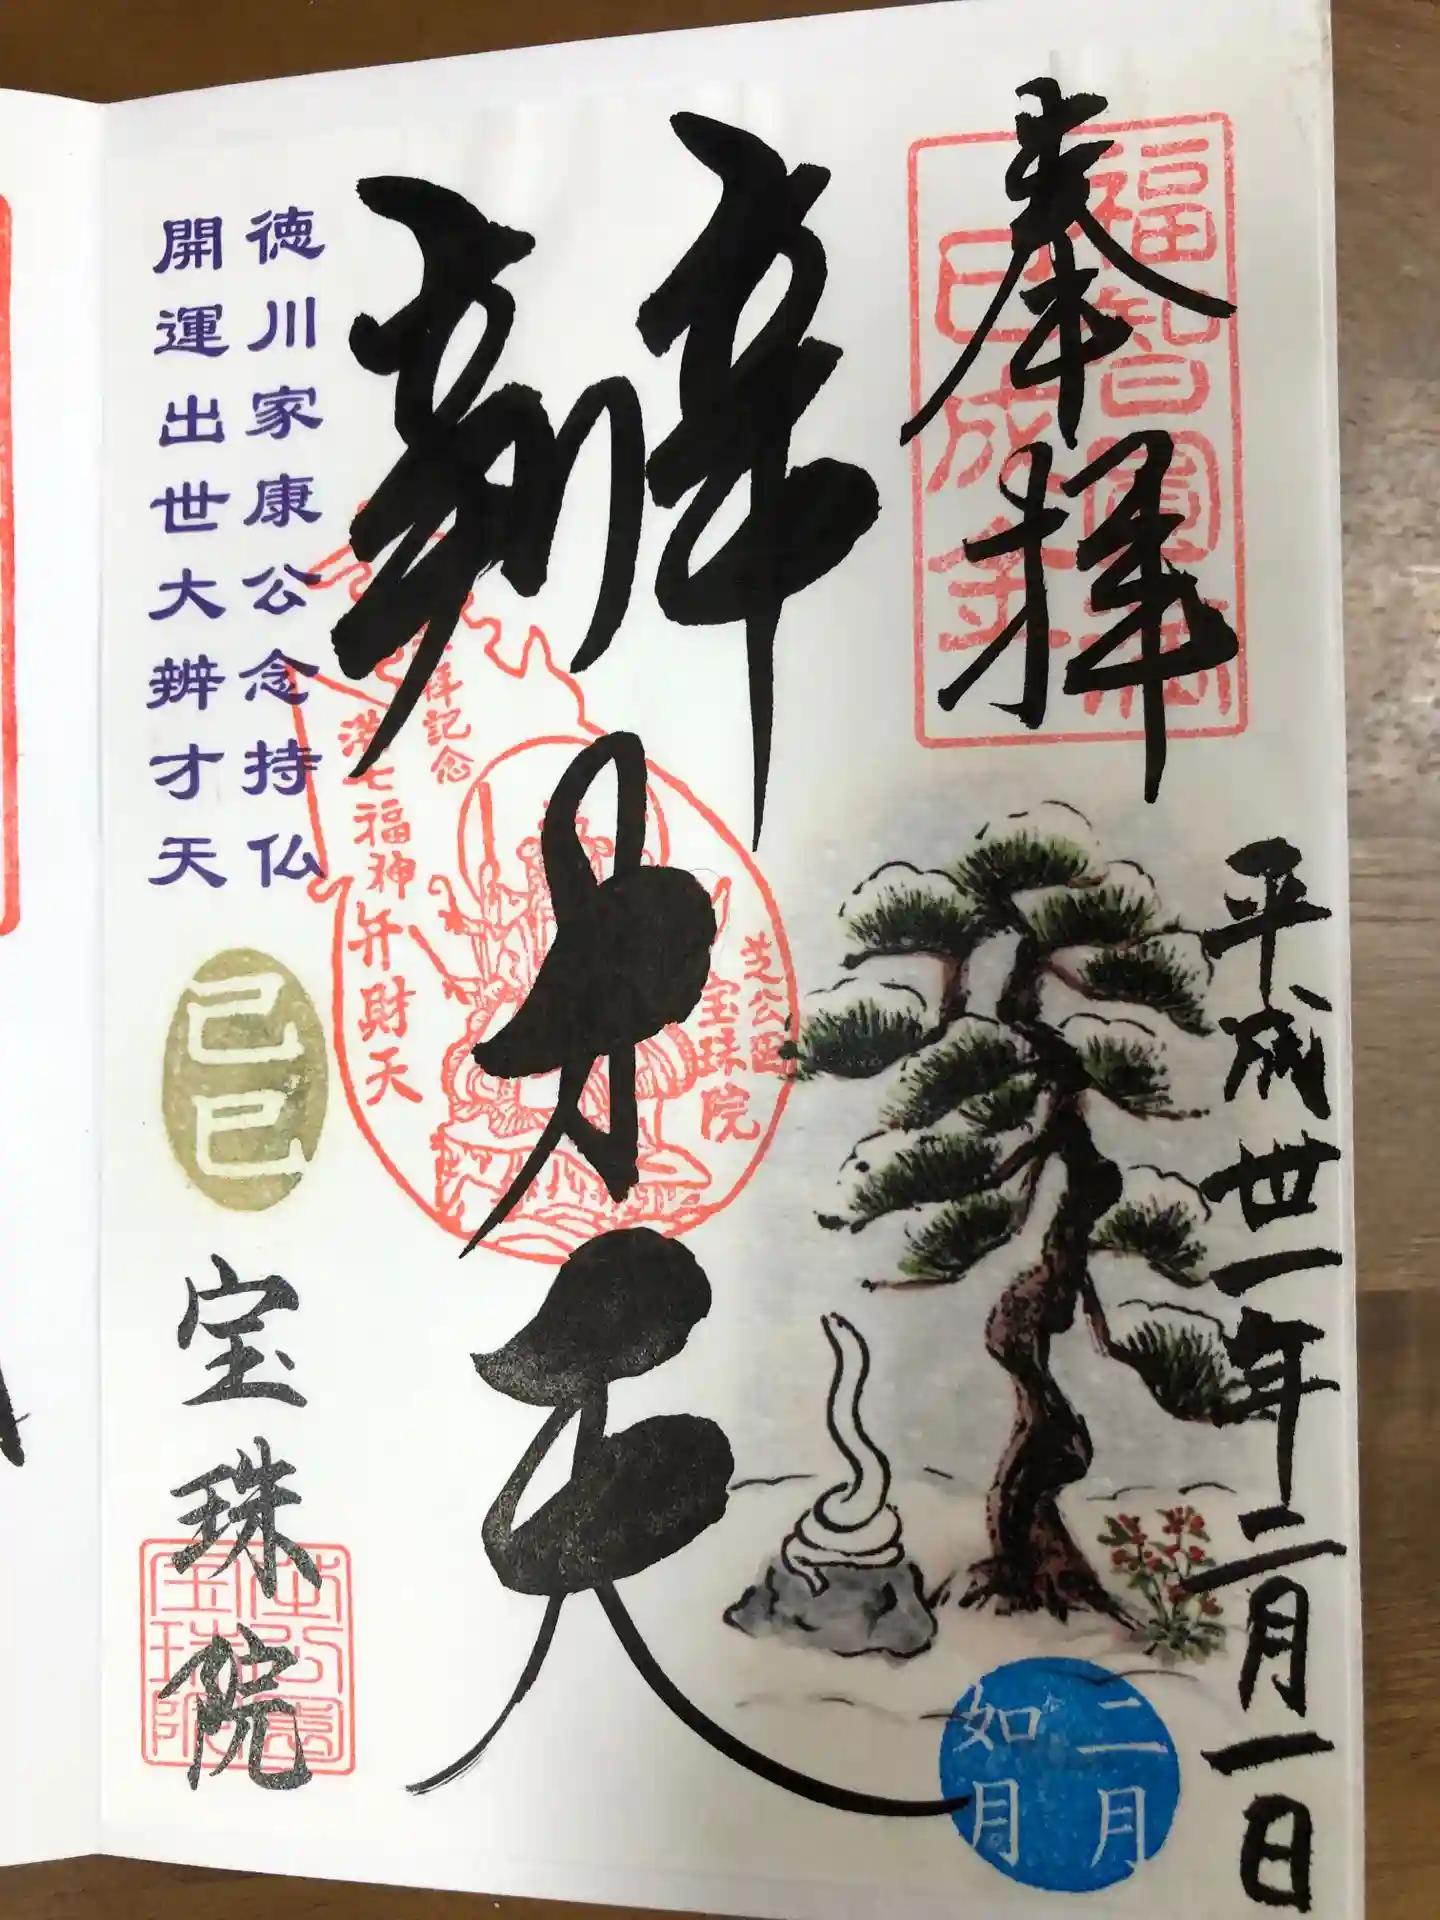 奉拝
福智圓満
巳成金
平成丗一年二月一日
二月
如月
辨才天
拝記念
港七福神
弁財天
芝公園
宝珠院
徳川家康公念持仏
開運出世大辨才天
己巳
宝珠院
芝公園
宝珠院